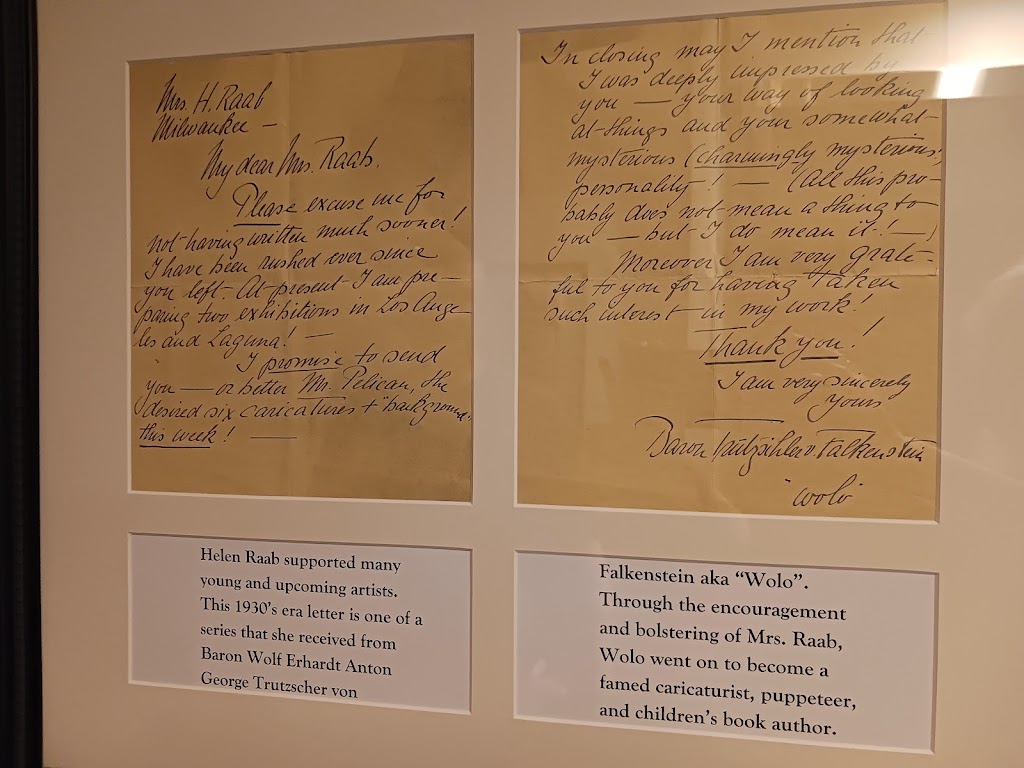 Mrs. H. Raab
Milwaukee —
My dear Mrs. Raab.
Please excuse me for
not having written much sooner!
I have been rushed ever since
you left. At present I am pre-
paring two exhibitions in Los Ange-
les and Laguna! —
I promise to send
you — or better Mr. Pelican, the
desired six caricatures + "background"
this week! —
In closing may I mention that
I was deeply impressed by
you — your way of looking
at things and your somewhat
mysterious (charmingly mysterious)
personality! — (All this pro-
bably does not mean a thing to
you — but I do mean it! —)
Moreover I am very grate-
ful to you for having taken
such interest in my work!
Thank you!
I am very sincerely
Yours
Baron Trützschler v. Falkenstein
"Wolo"
Helen Raab supported many
young and upcoming artists.
This 1930's era letter is one of a
series that she received from
Baron Wolf Erhardt Anton
George Trutzscher von
Falkenstein aka “Wolo”.
Through the encouragement
and bolstering of Mrs. Raab,
Wolo went on to become a
famed caricaturist, puppeteer,
and children's book author.